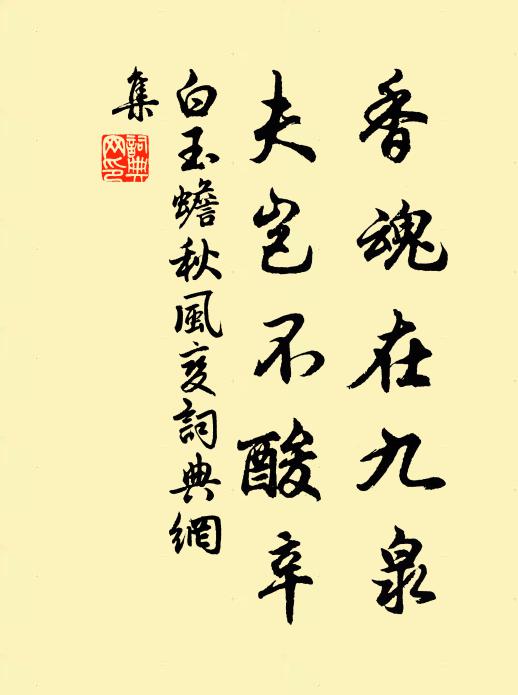 香魂在九泉
夫岂不酸辛
白玉蟾秋風变詞典網
集
詞典
网印